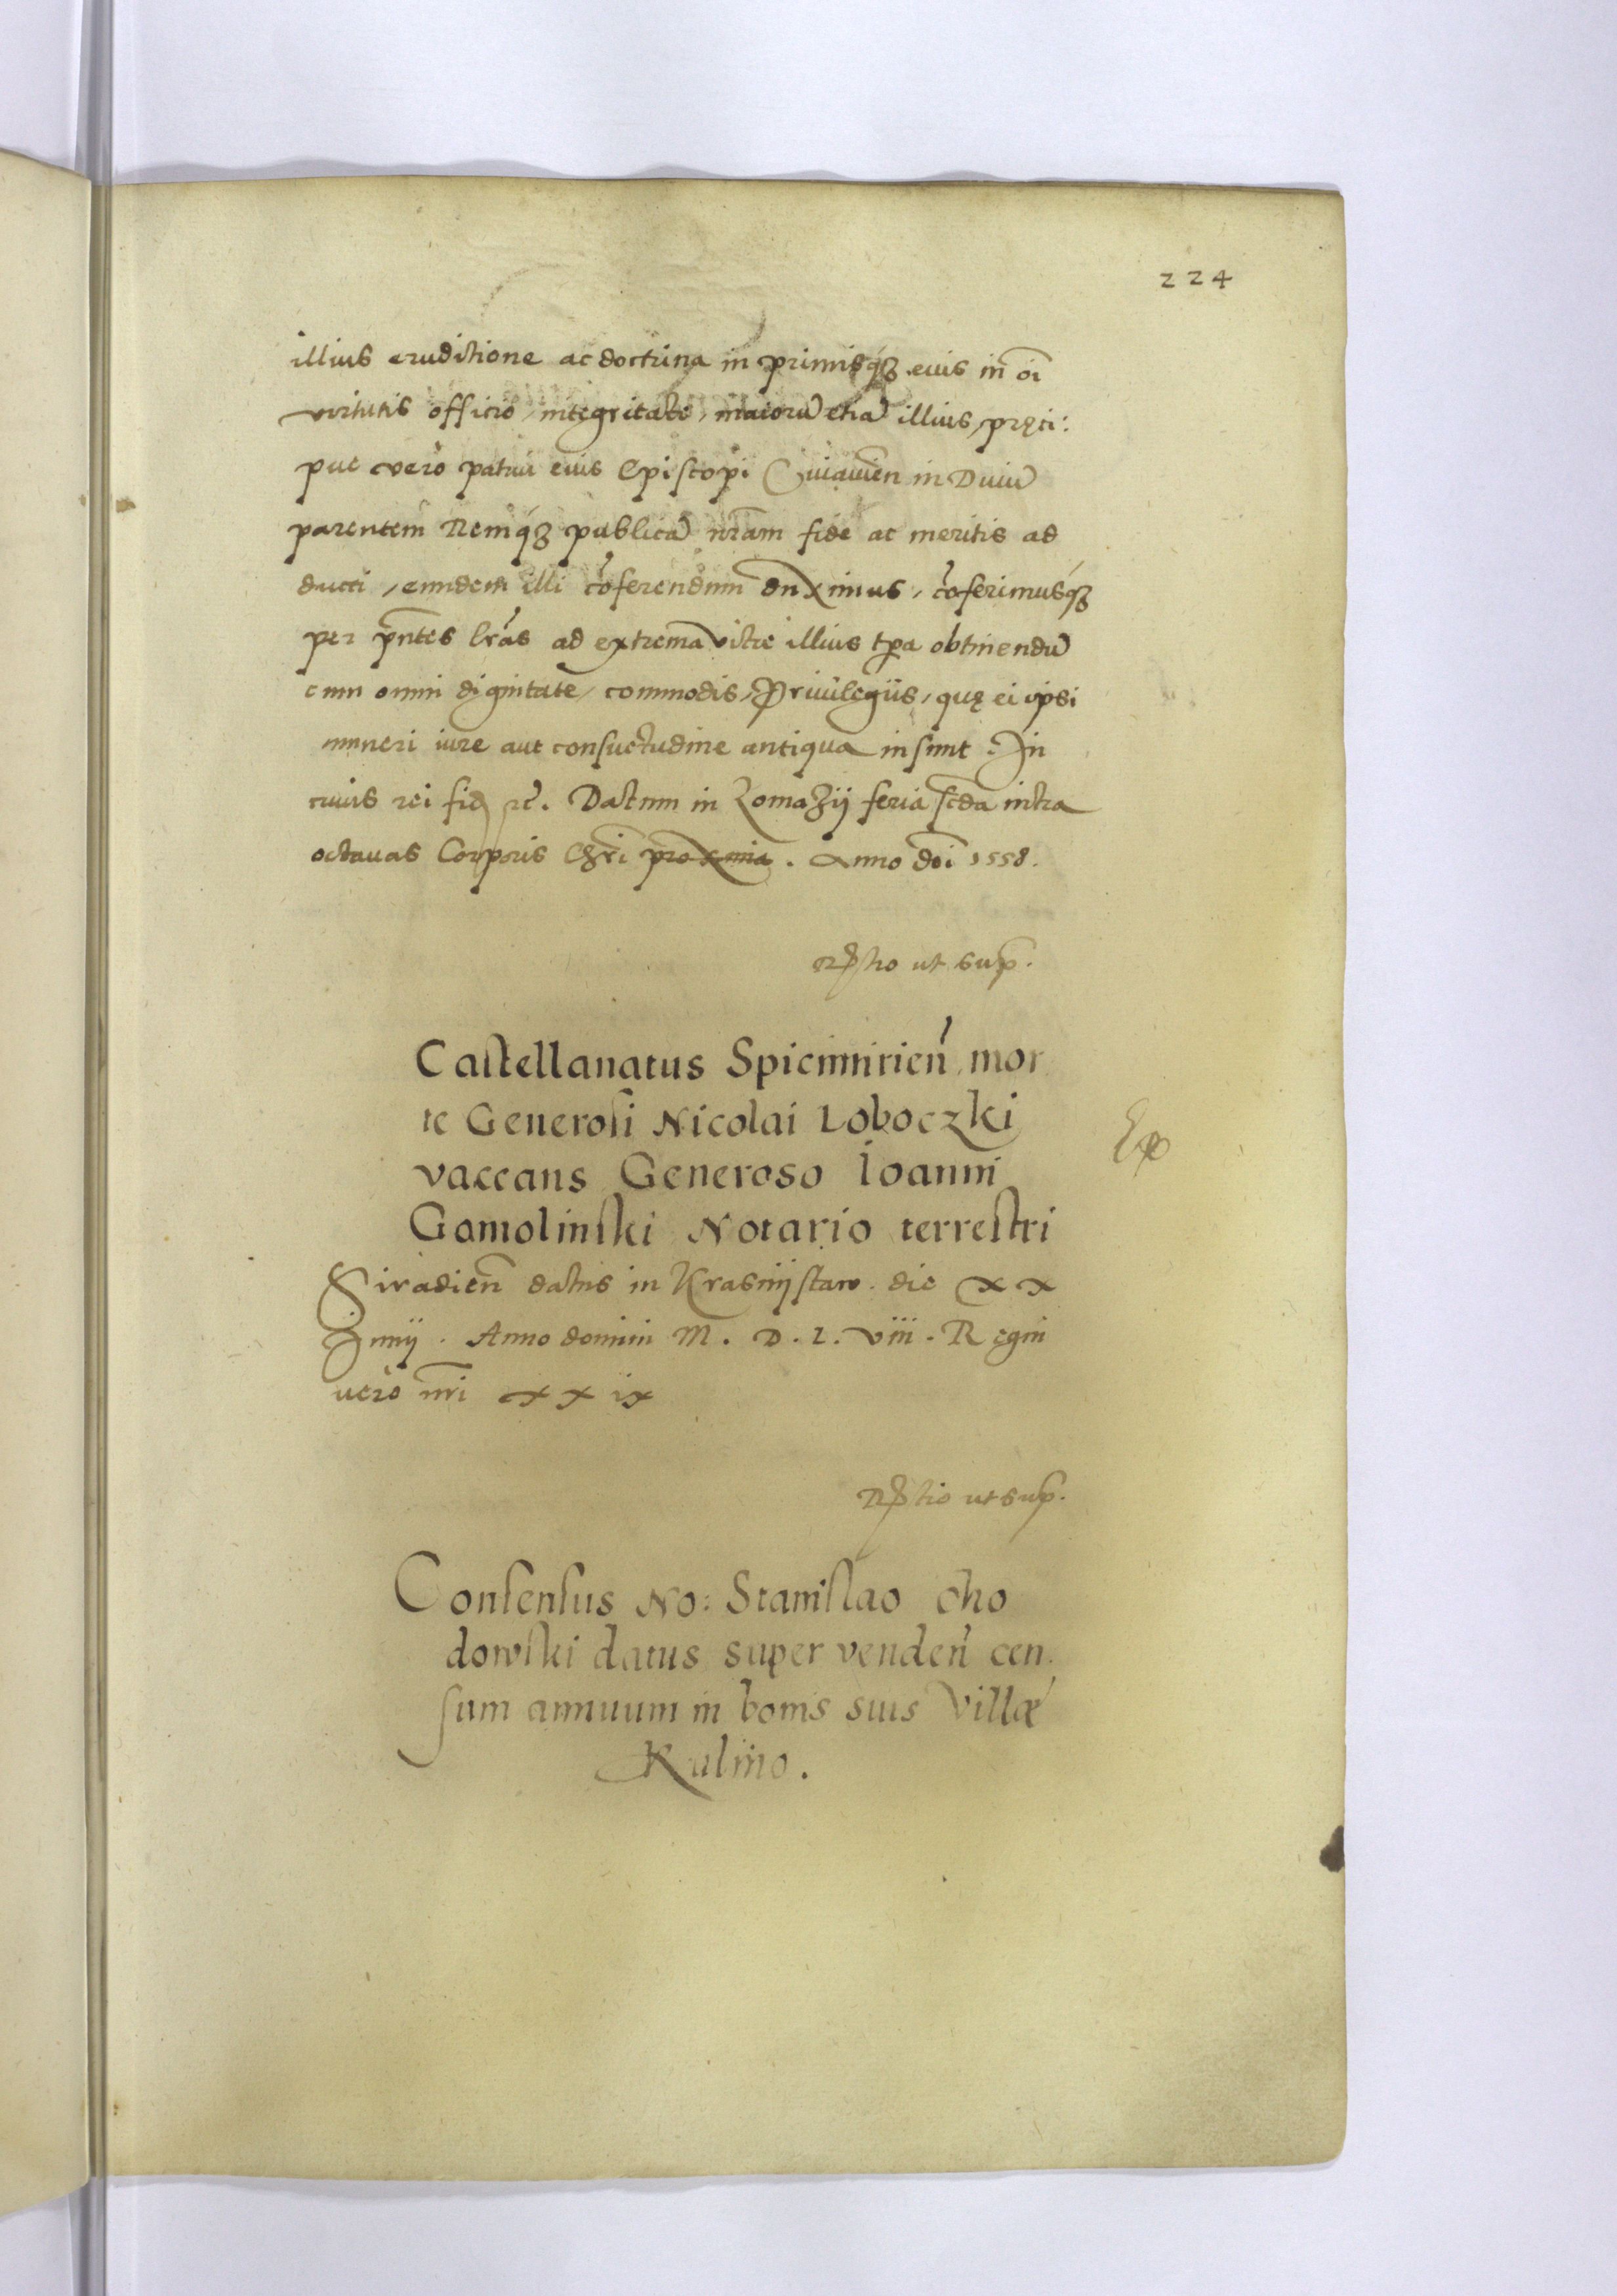 224
illius eruditione ac doctrina in primisq₃ eius in oi͂
virtutis officio, integritate, maiorũ etiã illius, pręci:
pue vero patrui eius Episcopi Cuiauień in Diuũ
parentem Remq₃ publicã nr̃am fide ac meritis ad
ducti, eundem illi cõferendum duximus, cõferimusq₃
per pñtes lrãs ad extrema vitæ illius tp̃a obtinendũ
cum omni dignitate, commodis, Priuilegiis, quę ei ipsi
muneri iure aut consuetudine antiqua insunt. In
cuius rei fid etc̃. Datum in Lomazÿ feria scd̃a intra
octauas Corporis Chrĩ proxima. Anno dñi 1558.
Rl̃tio ut sup̃.
Castellanatus Spicimirień mor
te Generosi Nicolai Loboczki
vaccans Generoso Ioanni
Gomolinski Notario terrestri
Siradień datus in Krasnijstaw. die xx
Junij. Anno domini M. D. L. viii. Regni
vero nr̃i xxix
Rl̃tio ut sup̃.
Consensus No: Stanislao Cho
dowski datus super venden̄ cen
sum annuum in bonis suis Villæ
Kulmo.